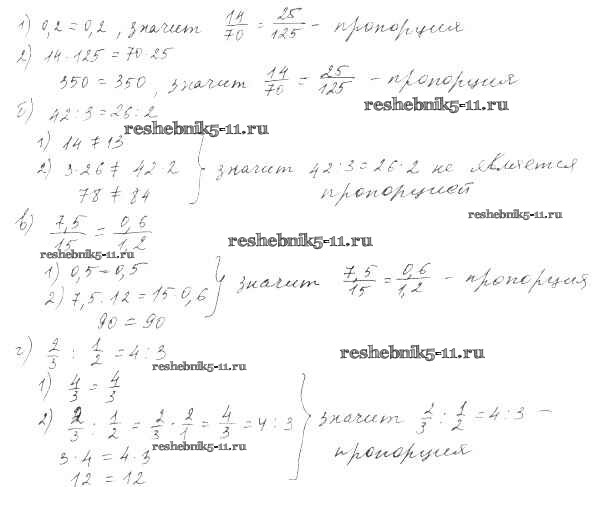 1) 0,2 = 0,2, значит 14/70 = 25/125 – пропорция
2) 14·125 = 70·25
350 = 350, значит 14/70 = 25/125 – пропорция
reshebnik5-11.ru
б) 42:3 = 26:2
reshebnik5-11.ru
1) 14 ≠ 13
2) 3·26 ≠ 42·2 } значит 42:3 = 26:2 не является
78 ≠ 84 пропорцией
reshebnik5-11.ru
в) 7,5/15 = 0,6/1,2
reshebnik5-11.ru
reshebnik5-11.ru
1) 0,5 = 0,5
2) 7,5·12 = 15·0,6 } значит 7,5/15 = 0,6/1,2 – пропорция
90 = 90
г) 2/3 : 1/2 = 4:3
reshebnik5-11.ru
reshebnik5-11.ru
1) 4/3 = 4/3
2) 2/3 : 1/2 = 2/3 · 2/1 = 4/3 = 4:3 } значит 2/3 : 1/2 = 4:3 –
reshebnik5-11.ru
3·4 = 4·3 пропорция
12 = 12